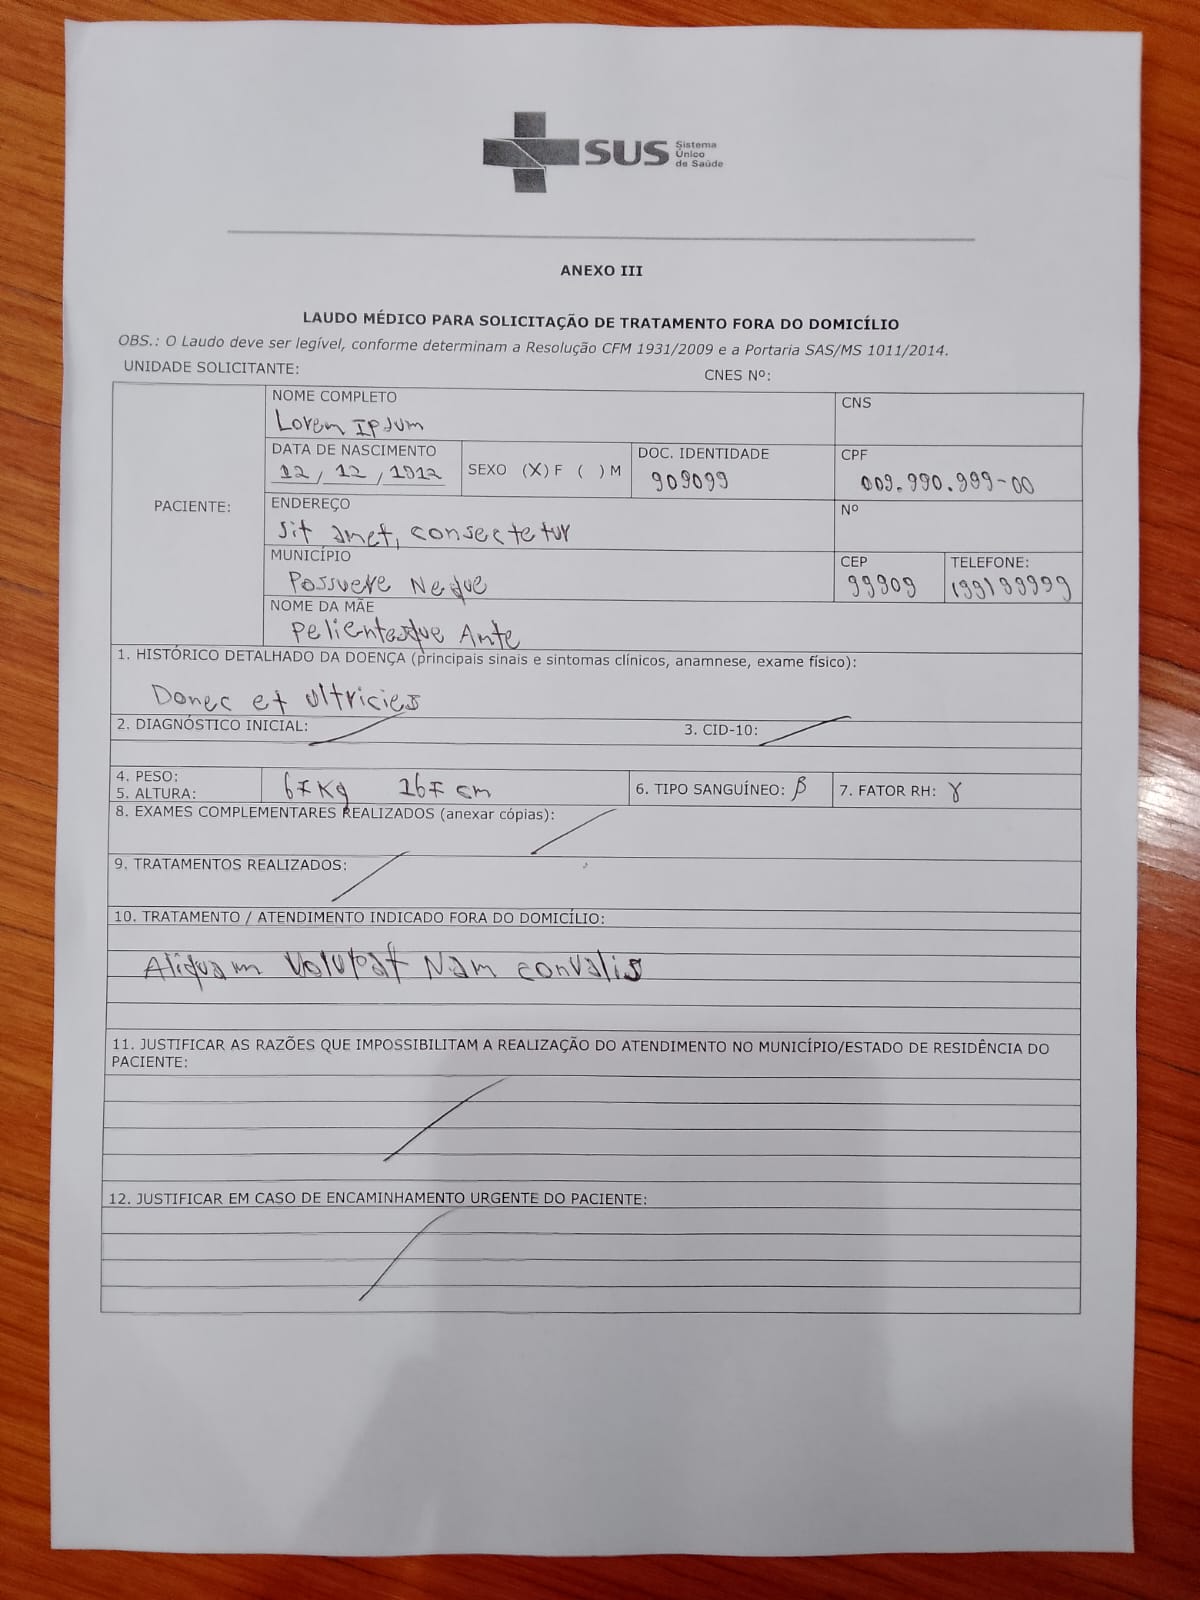 SUS Sistema
Único
de Saúde
ANEXO III
LAUDO MÉDICO PARA SOLICITAÇÃO DE TRATAMENTO FORA DO DOMICÍLIO
OBS.: O Laudo deve ser legível, conforme determinam a Resolução CFM 1931/2009 e a Portaria SAS/MS 1011/2014.
UNIDADE SOLICITANTE: CNES Nº:
PACIENTE:
NOME COMPLETO
Lorem Ipsum
CNS
DATA DE NASCIMENTO
12/12/1912
SEXO (X) F ( ) M
DOC. IDENTIDADE
909099
CPF
009.990.999-00
ENDEREÇO
sit amet, consectetur
Nº
MUNICÍPIO
Possuere Neque
CEP
99909
TELEFONE:
199199999
NOME DA MÃE
Pelientesque Ante
1. HISTÓRICO DETALHADO DA DOENÇA (principais sinais e sintomas clínicos, anamnese, exame físico):
Donec et ultricies
2. DIAGNÓSTICO INICIAL: 3. CID-10:
4. PESO:
5. ALTURA:
67Kg 167 cm
6. TIPO SANGUÍNEO: β
7. FATOR RH: γ
8. EXAMES COMPLEMENTARES REALIZADOS (anexar cópias):
9. TRATAMENTOS REALIZADOS:
10. TRATAMENTO / ATENDIMENTO INDICADO FORA DO DOMICÍLIO:
Aliquam Volutpat Nam convalis
11. JUSTIFICAR AS RAZÕES QUE IMPOSSIBILITAM A REALIZAÇÃO DO ATENDIMENTO NO MUNICÍPIO/ESTADO DE RESIDÊNCIA DO
PACIENTE:
12. JUSTIFICAR EM CASO DE ENCAMINHAMENTO URGENTE DO PACIENTE: